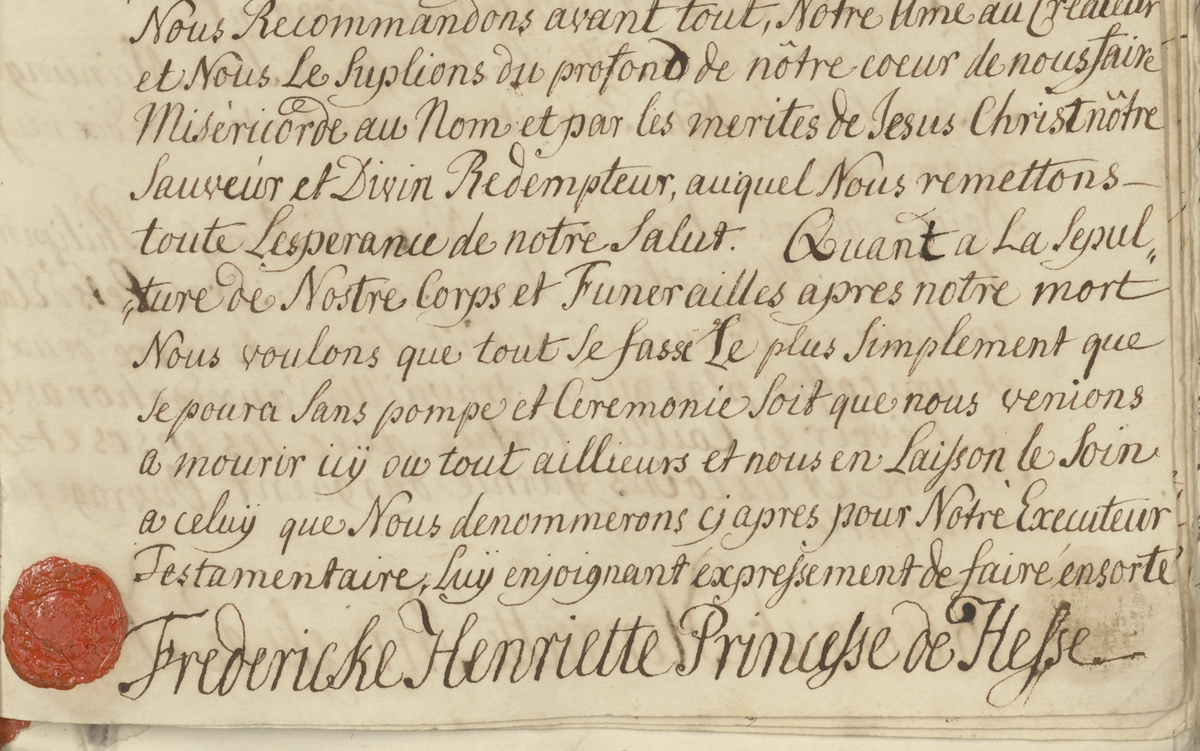 Nous Recommandons avant tout, Notre Ame au Créateur
et Nous Le Suplions du profond de nôtre coeur de nous faire
Miséricorde au Nom et par les merites de Jesus Christ nôtre
Sauveúr et Divin Redempteur, auquel Nous remettons —
toute Lesperance de notre Salut. Quant a La Sepul„
„ture de Nostre Corps et Funerailles apres notre mort
Nous voulons que tout Se fasse Le plus Simplement que
Se poura Sans pompe et Ceremonie Soit que nous venions
a mourir icÿ ou tout aillieurs et nous en Laisson le Soin
a celuÿ que Nous denommerons cj apres pour Notre Executeur
Testamentaire, Luÿ enjoignant expressement de faire ensorte
Fredericke Henriette Princesse de Hesse